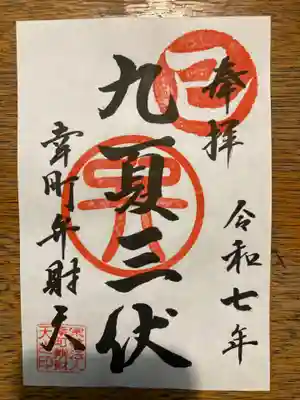 奉拝
令和七年
巳
九夏三伏
幸町弁財天